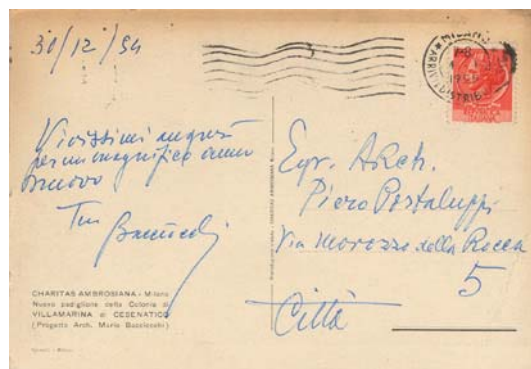 30/12/54
MILANO
ARRIVI DISTRIB
Vivissimi auguri
per un magnifico anno
nuovo
Tuo
Egr. Arch.
Piero Portaluppi
Via Morozzo della Rocca
5
Città
CHARITAS AMBROSIANA - Milano
Nuovo padiglione della Colonia di
VILLAMARINA di CESENATICO
(Progetto Arch. Mario Bacciocchi)